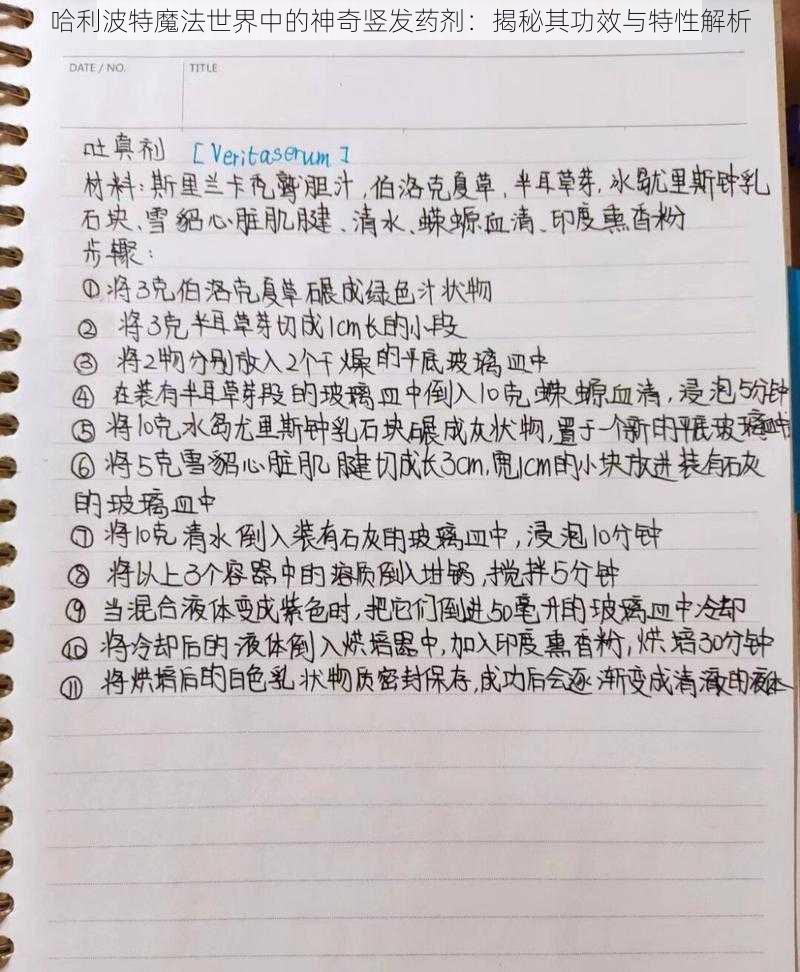 哈利波特魔法世界中的神奇竖发药剂：揭秘其功效与特性解析
DATE / NO.
TITLE
吐真剂 [Veritaserum]
材料：斯里兰卡秃鹫胆汁，伯洛克夏草，半耳草芽，水岛尤里斯钟乳
石块、雪貂心脏肌腱、清水、蝾螈血清、印度熏香粉
步骤：
①将3克伯洛克夏草碾成绿色汁状物
② 将3克半耳草芽切成1cm长的小段
③ 将2物分别放入2个干燥的平底玻璃皿中
④ 在装有半耳草芽段的玻璃皿中倒入10克蝾螈血清，浸泡5分钟
⑤ 将10克水岛尤里斯钟乳石块碾成灰状物，置于一个新的平底玻璃皿中
⑥ 将5克雪貂心脏肌腱切成长3cm，宽1cm的小块放进装有石灰
的玻璃皿中
⑦ 将10克清水倒入装有石灰的玻璃皿中，浸泡10分钟
⑧ 将以上3个容器中的溶质倒入坩锅，搅拌5分钟
⑨ 当混合液体变成紫色时，把它们倒进50毫升的玻璃皿中冷却
⑩ 将冷却后的液体倒入烘焙器中，加入印度熏香粉，烘焙30分钟
⑪ 将烘焙后的白色乳状物质密封保存，成功后会逐渐变成清澈的液体